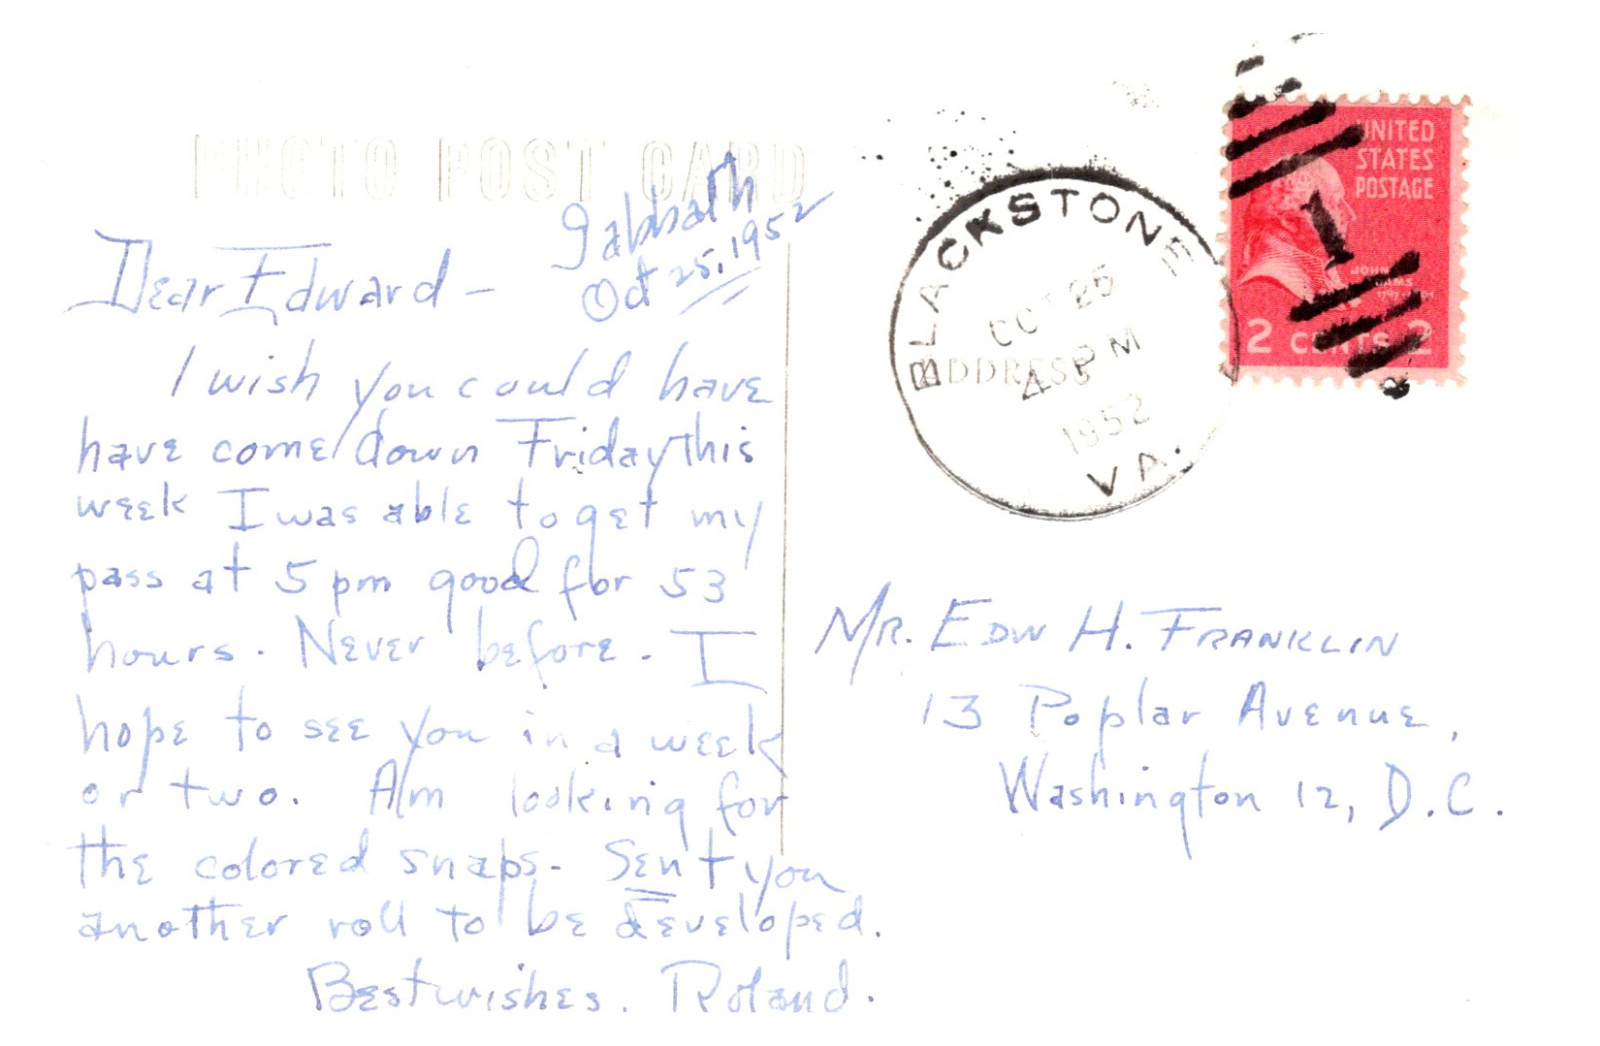 PHOTO POST CARD
Sabbath
Oct 25, 1952
Dear Edward -
I wish you could have
have come down Friday this
week I was able to get my
pass at 5 pm good for 53
hours. Never before. I
hope to see you in a week
or two. Am looking for
the colored snaps. Sent you
another roll to be developed.
Best wishes. Roland.
BLACKSTONE
OCT 25
4 PM
1952
VA.
ADDRESS
UNITED
STATES
POSTAGE
1
JOHN
ADAMS
2 CENTS 2
MR. EDW H. FRANKLIN
13 Poplar Avenue,
Washington 12, D.C.